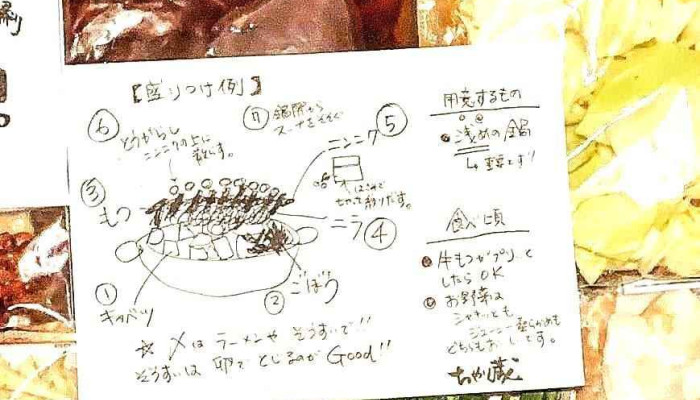 【盛りつけ例】
⑥ とうがらし
ニンニクの上に
散らす。
⑦ 鍋際から
スープをそそぐ
ニンニク ⑤
はさみで
切って割りだす。
③ もつ
ニラ ④
① キャベツ
② ごぼう
☆ 〆はラーメンや ぞうすいで!!
ぞうすいは 卵でとじるのが Good!!
用意するもの
浅めの鍋
↳ 重要です!
食べ頃
牛もつがプリッと
したらOK
お野菜は
シャキッとも
ジューシー柔らかめも
どちらもおいしです。
ちか蔵